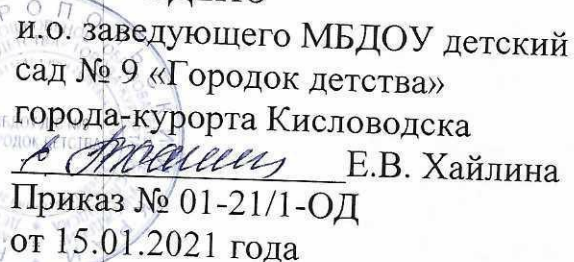 и.о. заведующего МБДОУ детский
сад № 9 «Городок детства»
города-курорта Кисловодска
Е.В. Хайлина
Приказ № 01-21/1-ОД
от 15.01.2021 года